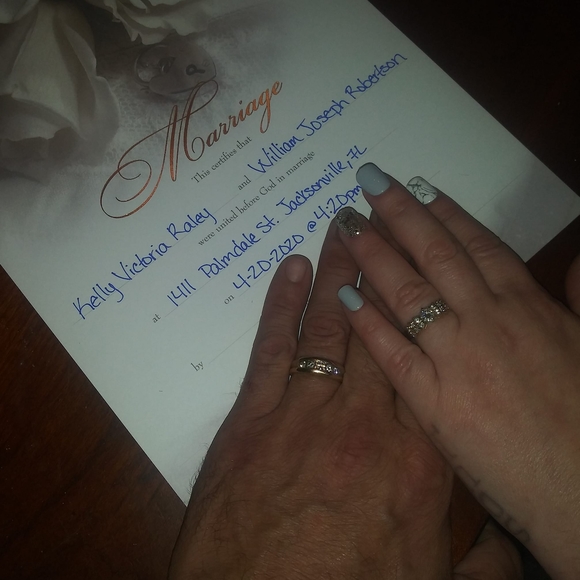 Marriage
This certifies that
Kelly Victoria Raley and William Joseph Robertson
were united before God in marriage
at 1411 Palmdale St. Jacksonville, FL
on 4-20-2020 @ 4:20pm
by